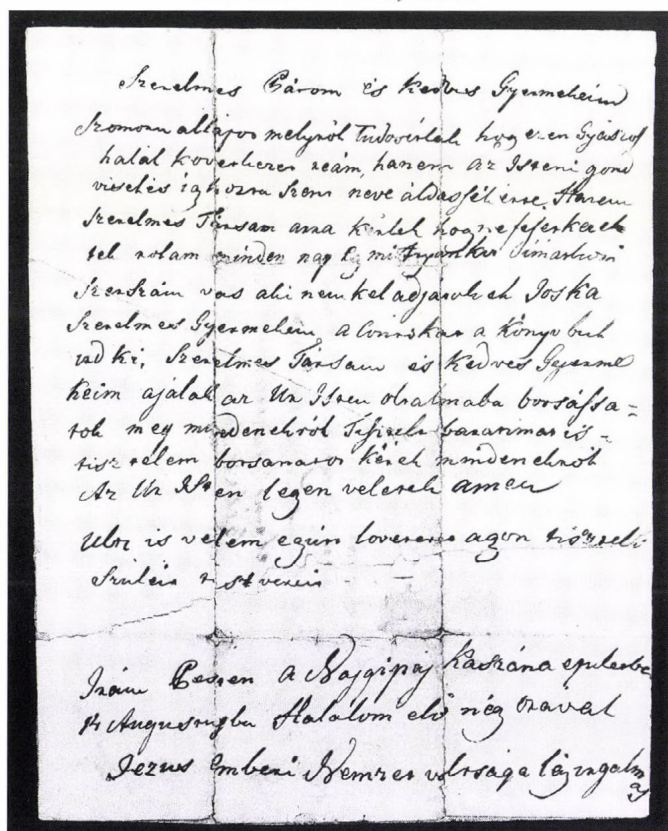 Szerelmes Párom és Kedves Gyermekeim
Szomoru allapos melyröl Tudositlak hogy ezen Gyászos
halál következet reám, hanem az Isteni gond
viselés igy hozta Szent neve áldassék érte, Hanem
Szerelmes Társam arra kérlek hogy ne
tel rolam minden nap
Szerszám vas aki nem kel adjatok el Joska
Szerelmes Gyermekem a a Könyv buh
ird ki, Szerelmes Társam és Kedves Gyerme
keim ajálak az Ur Isten otalmaba borsássa=
tok meg mindenekröl barátimat is=
tisztelem borsanatot kérek mindenektöl
Az Ur Isten legen veletek amen
is velem egün agon tiszteli
Szüleit testvereit
Iram Pesten a Kaszána epuletbe
14 Augusztusba Halálom elö nég oraval
Jezus Emberi Nemzet váltsága légy irgalmas